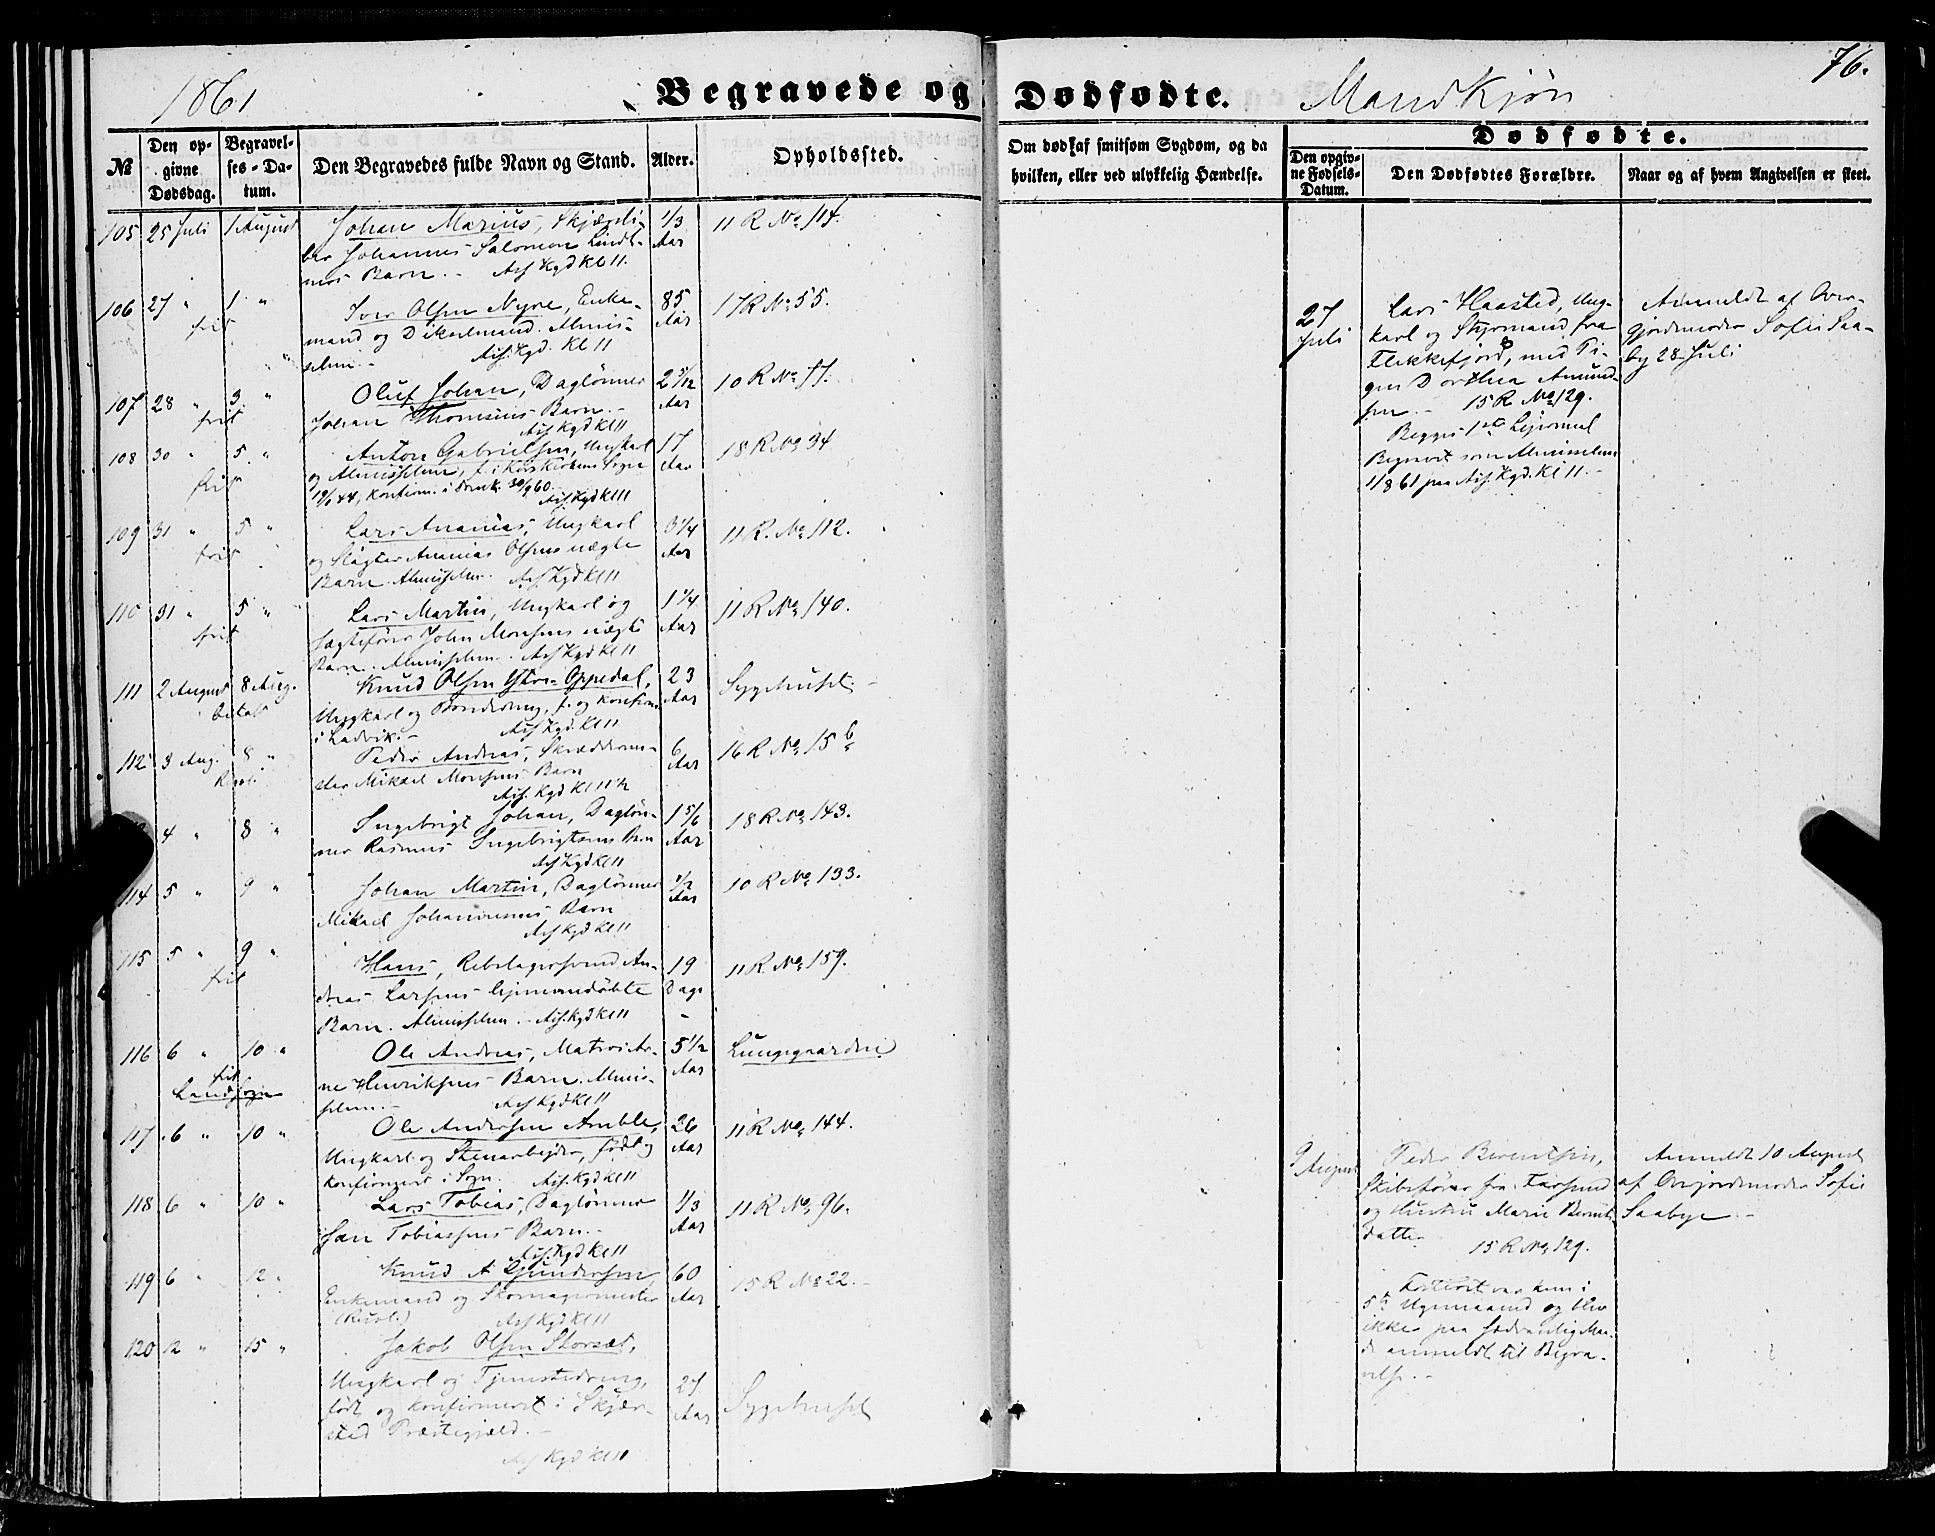 1861
Begravede og Dødfødte. Mandkjøn
76.
№
Den opgivne Dødsdag.
Begravelses-Datum.
Den Begravedes fulde Navn og Stand.
Alder.
Opholdssted.
Om død af smitsom Sygdom, og da hvilken, eller ved ulykkelig Hændelse.
Dødfødte.
Den opgivne Fødsels-Datum.
Den Dødfødtes Forældre.
Naar og af hvem Angivelsen er skeet.
105 25 Juli 1 August Johan Marius, 1/3 Aar 11 R No 114.
Johannes Salomon
Barn. Ass Kgd Kl 11.
106 27 " 1 " Iver Olsen Nyre, Enke- 85 Aar 17 R No 55.
frit mand og Almis-
selem. Ass. Kgd. Kl 11
107 28 " 3 " Oluf Johan, Daglønner 2 Aar 10 R No 77.
frit Johan Thomsens Barn.
Ass Kgd Kl 11
108 30 " 5 " Anton Gabrielsen, Ungkarl 17 Aar 18 R No 34
frit og Almisselem, f. i Korskirkens Sogn
44, konfirm. i 60. Ass Kgd Kl 11
109 31 " 5 " Lars Ananias, Ungkarl 3 1/4 Aar 11 R. No 112.
frit og Slagter Ananias Olsens uægte
Barn. Almisselem. Ass Kgd Kl 11
110 31 " 5 " Lars Martin, Ungkarl og 1 1/4 Aar 11 R No 140.
frit Jagtefører John Monsens uægte
Barn. Almisselem. Ass Kgd Kl 11
111 2 August 8 Aug. Knud Olsen Ytre-Oppedal, 23 Aar Sygehuset.
betalt Ungkarl og Bondedreng, f. og konfirm.
i Ladvik. Ass Kgd. Kl 11
112 3 Aug. 8 " Peder Andreas, Skrædderme- 6 Aar 16 R No 15 b
ster Mikael Monsens Barn
Ass. Kgd Kl 11 1/2
4 " 8 " Ingebrigt Johan, Dagløn- 1 5/6 Aar 18 R No 143.
ner Rasmus Ingebrigtsens Barn
Ass Kgd Kl 11
114 5 " 9 " Johan Martin, Daglønner 1/2 Aar 10 R No 133.
Mikael Johannesens Barn
Ass Kgd Kl 11
115 5 " 9 " Hans, Rebslagersvend An- 19 Dage 11 R No 159.
frit dreas Larsens hjemmedøbte
Barn. Almisselem. Ass. Kgd Kl 11
116 6 " 10 " Ole Andreas, Matros Ar- 5 1/2 Aar Lungegaarden
frit ne Henriksens Barn. Almis-
Landsogn selem. Ass Kgd Kl 11
117 6 " 10 " Ole Andersen Amble, 26 Aar 11 R No 144.
Ungkarl og Stenarbejder, født og
konfirmeret i Sogn. Ass. Kgd Kl 11
118 6 " 10 " Lars Tobias, Daglønner 1/3 Aar 11 R No 96.
Jan Tobiassens Barn.
Ass. Kgd Kl 11
119 6 " 12 " Knud A Gundersen, 60 Aar 15 R No 22.
Enkemand og Skomagermester
Ass Kgd Kl 11
120 12 " 15 " Jakob Olsen Storsæt, 27 Aar Sygehuset
Ungkarl og Tjenestedreng,
født og konfirmeret i Skjær-
stad Præstegjæld.
Ass Kgd Kl 11
27 Juli
Lars Haasted, Ung-
karl og Styrmand fra
Flekkefjord, med Pi-
gen Dorthea Amund-
sen. 15 R No 129.
Begges 1ste Lejermaal
Begravet som Almisselem
1/8 61 paa Ass. Kgd. Kl 11.
Anmeldt af Over-
gjordemoder Sofie Saa-
by 28 Juli
9 August
Peder Berentsen,
Skibsfører fra Farsund
og Hustru Marie Bernts-
datter 15 R No 129.
Fosteret var kun i
5te Ugemaaned og blev
ikke paa sædvanlig Maa-
de anmeldt til Begra-
velse.
Anmeldt 10 August
af Overjordemoder Sofie
Saabye.